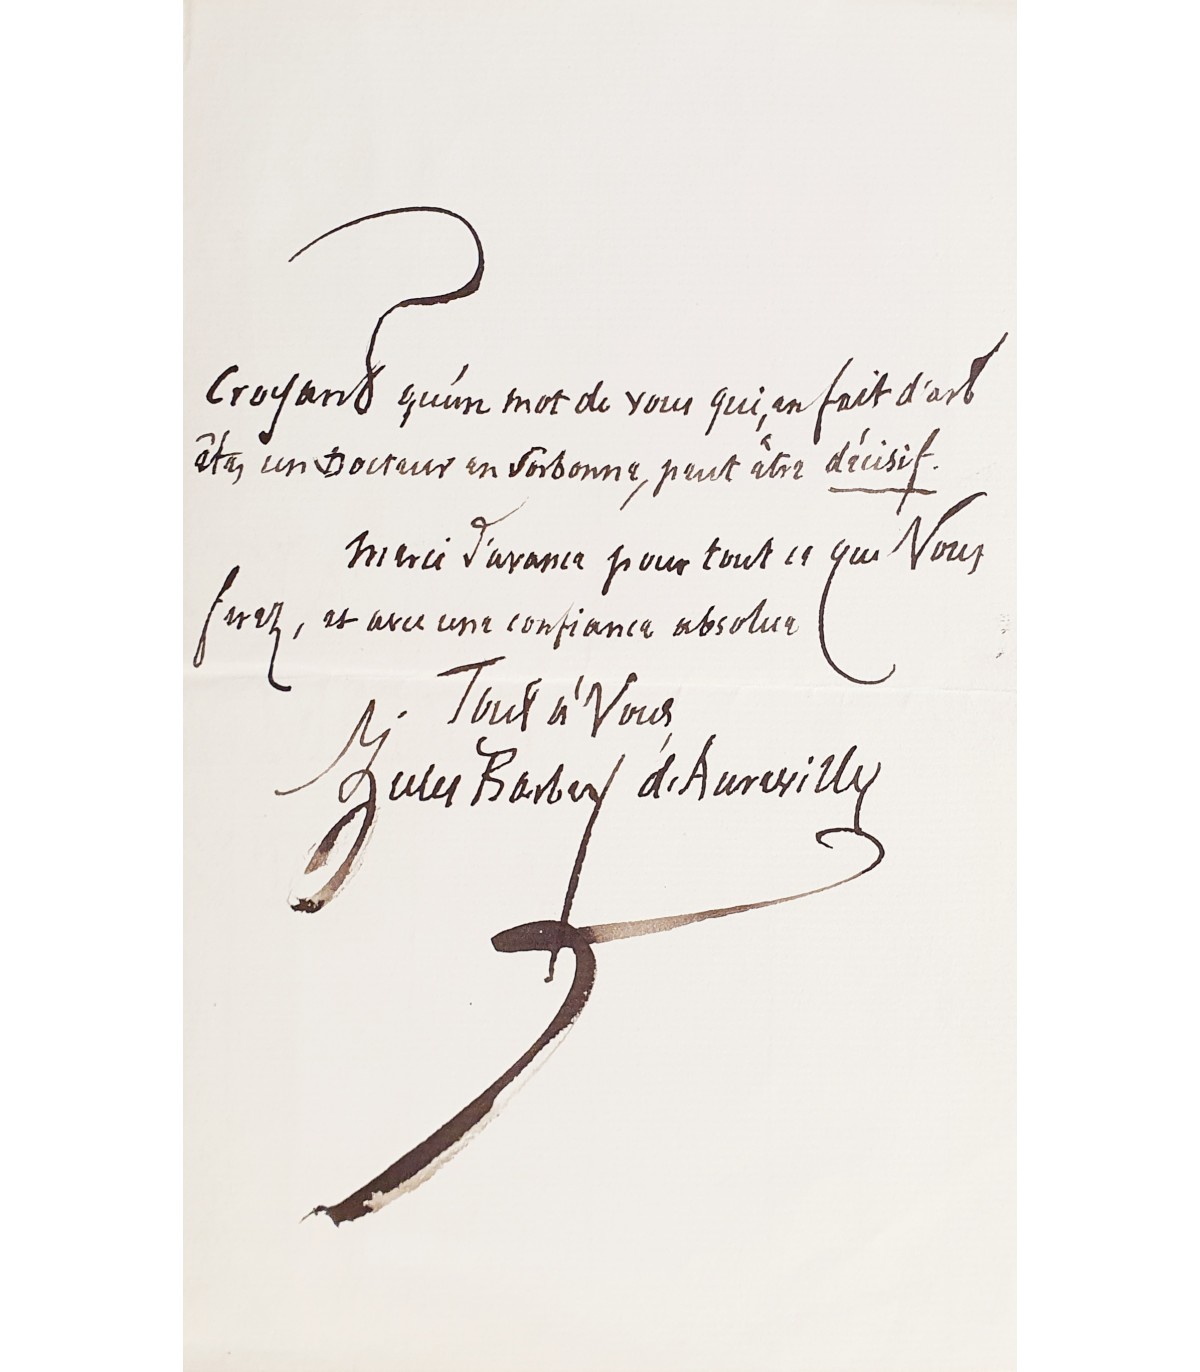 Croyant qu'un mot de vous qui, en fait d'art
êtes un Docteur en Sorbonne, peut être décisif.
Merci d'avance pour tout ce que Vous
ferez, et avec une confiance absolue
Tout à Vous,
Jules Barbey d'Aurevilly